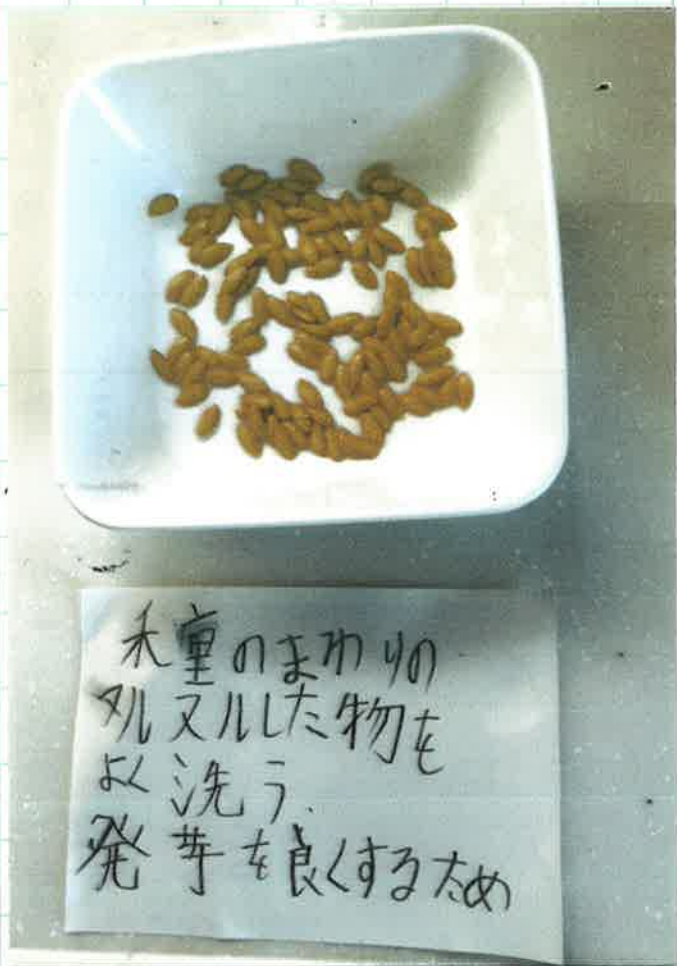 種のまわりの
ヌルヌルした物を
よく洗う.
発芽を良くするため